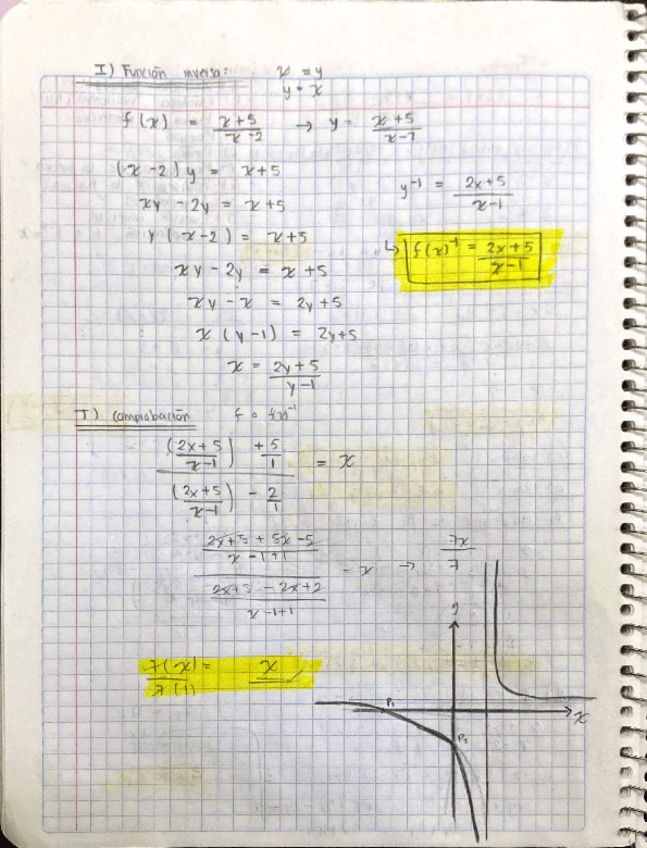 I) Función inversa: x = y
y = x
f(x) = x+5 / x-2 → y = x+5 / x-2
(x-2) y = x+5
xy - 2y = x+5
y(x-2) = x+5
xy - 2y = x+5
xy - x = 2y+5
x(y-1) = 2y+5
x = 2y+5 / y-1
y⁻¹ = 2x+5 / x-1
↳ f(x)⁻¹ = 2x+5 / x-1
J) Comprobación f ∘ f(x)⁻¹
(2x+5 / x-1) + 5/1 = x
(2x+5 / x-1) - 2/1
2x+5 + 5x-5 / x-1+1 = x → 7x / 7
2x+5 - 2x+2 / x-1+1
7(x) / 7(1) = x
y
P₁
x
P₂